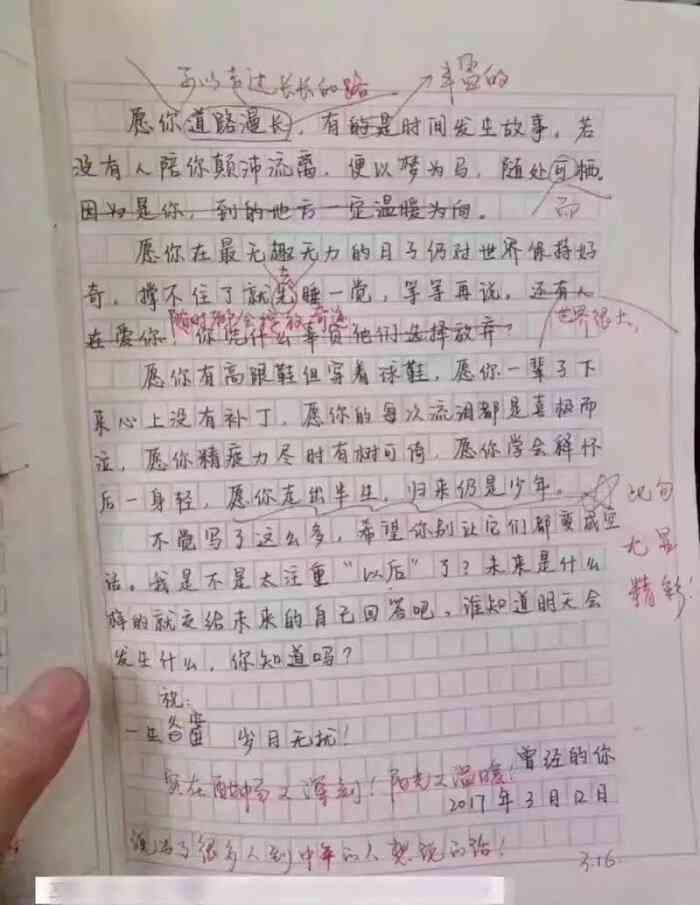 可以走过长长的路 丰盈的
愿你道路漫长，有的是时间发生故事，若
没有人陪你颠沛流离，便以梦为马，随处可栖。
因为是你，到的地方一定温暖为向。 而
愿你在最无趣无力的日子仍对世界保持好
去
奇，撑不住了就先睡一觉，等等再说。还有人
随时都会 奇迹
在爱你，你凭什么辜负他们选择放弃？ 世界很大，
愿你有高跟鞋但穿着球鞋，愿你一辈子下
来心上没有补丁，愿你的每次流泪都是喜极而
泣，愿你精疲力尽时有树可倚，愿你学会释怀
后一身轻，愿你走出半生，归来仍是少年。 此句
不觉写了这么多，希望你别让它们都变成空 尤显
话。我是不是太注重“以后”了？未来是什么 精彩！
样的就交给未来的自己回答吧，谁知道明天会
发生什么，你知道吗？
祝：
一生 岁月无扰！
曾经的你
实在酣畅又深刻！阳光又温暖！
2017年3月12日
说出了很多人到中年的人想说的话！
3.16